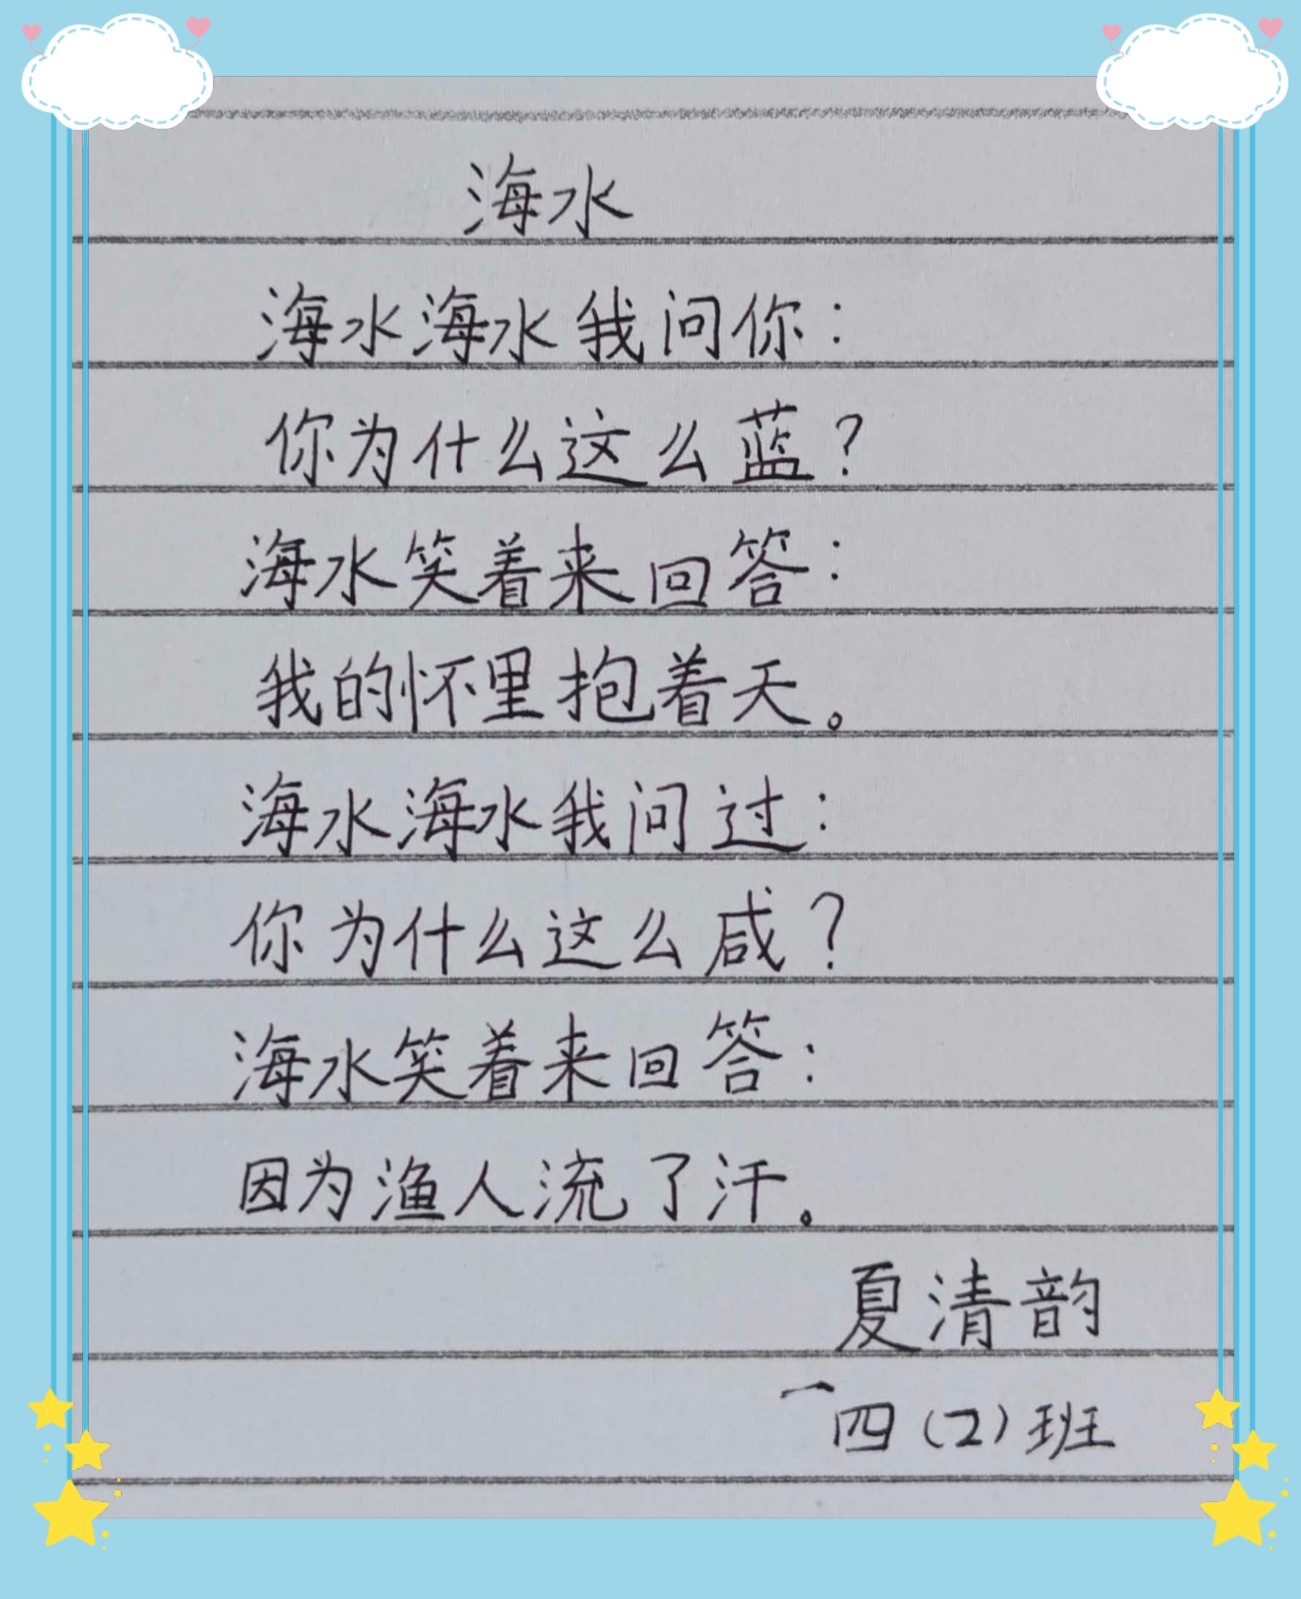 海水
海水海水我问你：
你为什么这么蓝？
海水笑着来回答：
我的怀里抱着天。
海水海水我问过：
你为什么这么咸？
海水笑着来回答：
因为渔人流了汗。
夏清韵
四（2）班